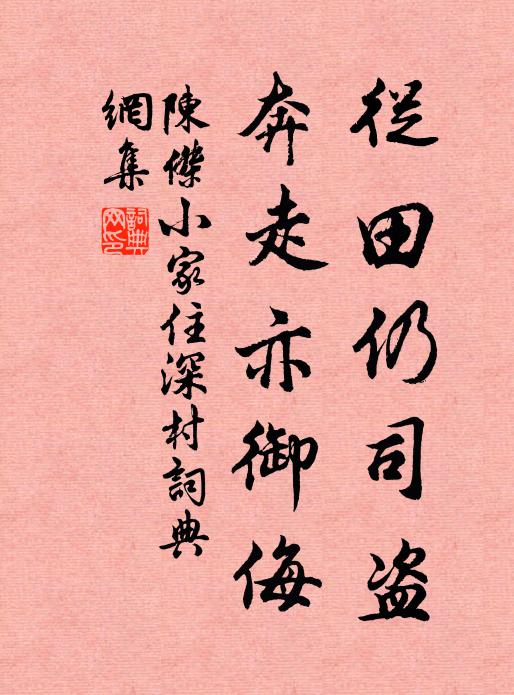 從田仍司盜
奔走亦御侮
陳傑小家住深村詞典
網集
詞典網印